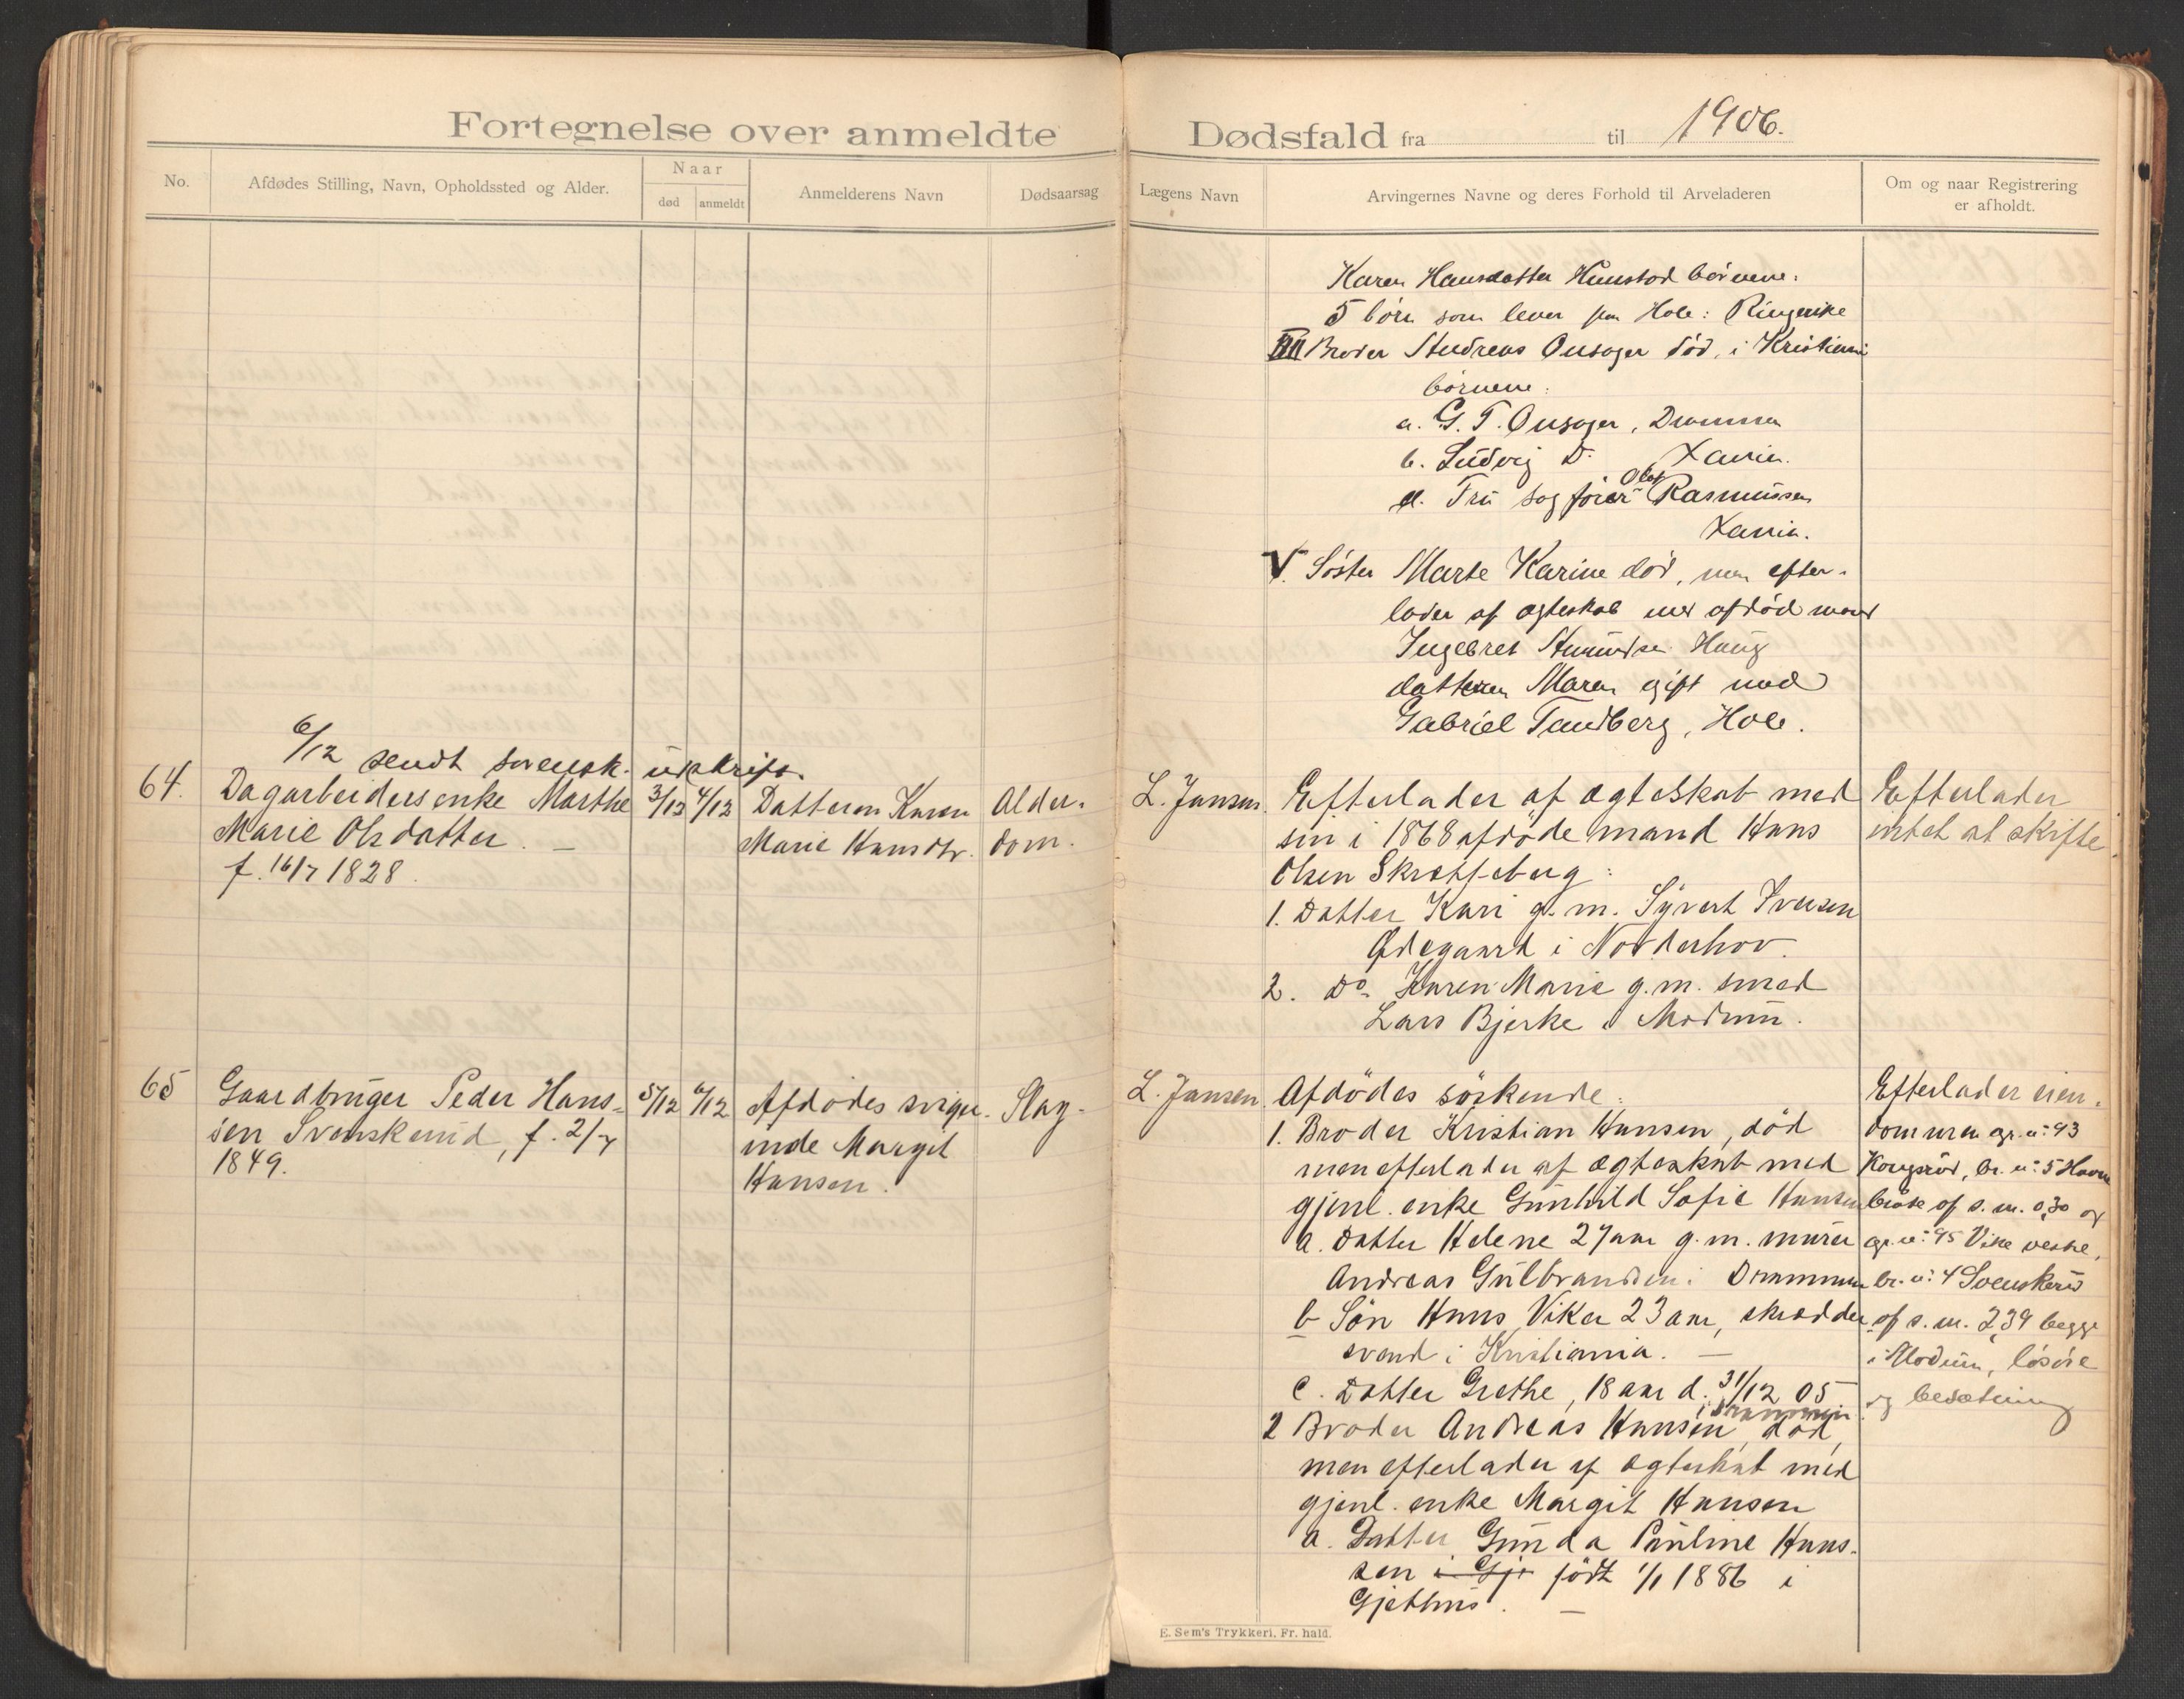 Fortegnelse over anmeldte Dødsfald fra til 1906.
No.
Afdødes Stilling, Navn, Opholdssted og Alder.
Naar
død
anmeldt
Anmelderens Navn
Dødsaarsag
Lægens Navn
Arvingernes Navne og deres Forhold til Arveladeren
Om og naar Registrering
er afholdt.
Karen Hansdatter børnene:
5 børn som lever paa Hole: Ringerike
Broder Andreas Onsager død, i Kristiania
børnene:
a. G. T. Onsager, Drammen
b. Ludvig Do Xania.
Fru sagfører Olaf Rasmussen
Xania.
V. Søster Marte Karine død, men efter-
lader af ægteskab med afdød mand
Ingebret Amundsen Haug
datteren Maren gift med
Gabriel Tandberg, Hole.
6/12 sendt svensk. utskrift.
64.
Dagarbeidersenke Marthe
Marie Olsdatter. —
f. 16/7 1828.
3/12
4/12
Datteren Karen
Marie Hansdtr.
Alder-
dom.
L. Jansen.
Efterlader af ægteskab med
sin i 1868 afdøde mand Hans
Olsen Skrotteberg:
1. Datter Kari g. m. Syvert Iversen
Ødegaard i Norderhov.
2. Do Karen Marie g. m. smed
Lars Bjerke i Modum.
Efterlader
intet at skifte.
65
Gaardbruger Peder Hans-
sen Svenskerud, f. 2/7
1849.
5/12
6/12
Afdødes sviger-
inde Margit
Hansen.
Slag-
L. Jansen.
Afdødes søskende:
1. Broder Kristian Hansen, død
men efterlader af ægteskab med
gjenl. enke Gunhild Sofie Hansen
a. Datter Helene 27 aar g. m. murer
Andreas Gulbrandsen i Drammen
b Søn Hans Viker 23 aar, skrædder-
svend i Kristiania. —
c. Datter Grethe, 18 aar d. 31/12 05
i Drammen
2 Broder Andreas Hansen, død,
men efterlader af ægteskab med
gjenl. enke Margit Hansen
a. Datter Gunda Pauline Hans-
sen i Gj. født 1/1 1886 i
Gjethus. —
Efterlader eien-
dommen gr. n: 93
Kongsrud, br. n: 5 Havne
af s. m. 0,30 og
gr. n: 95 Vike vestre,
br. n: 4 Svenskerud
af s. m. 2,39 begge
i Modum, løsøre
og besætning
E. Sem's Trykkeri, Fr. hald.